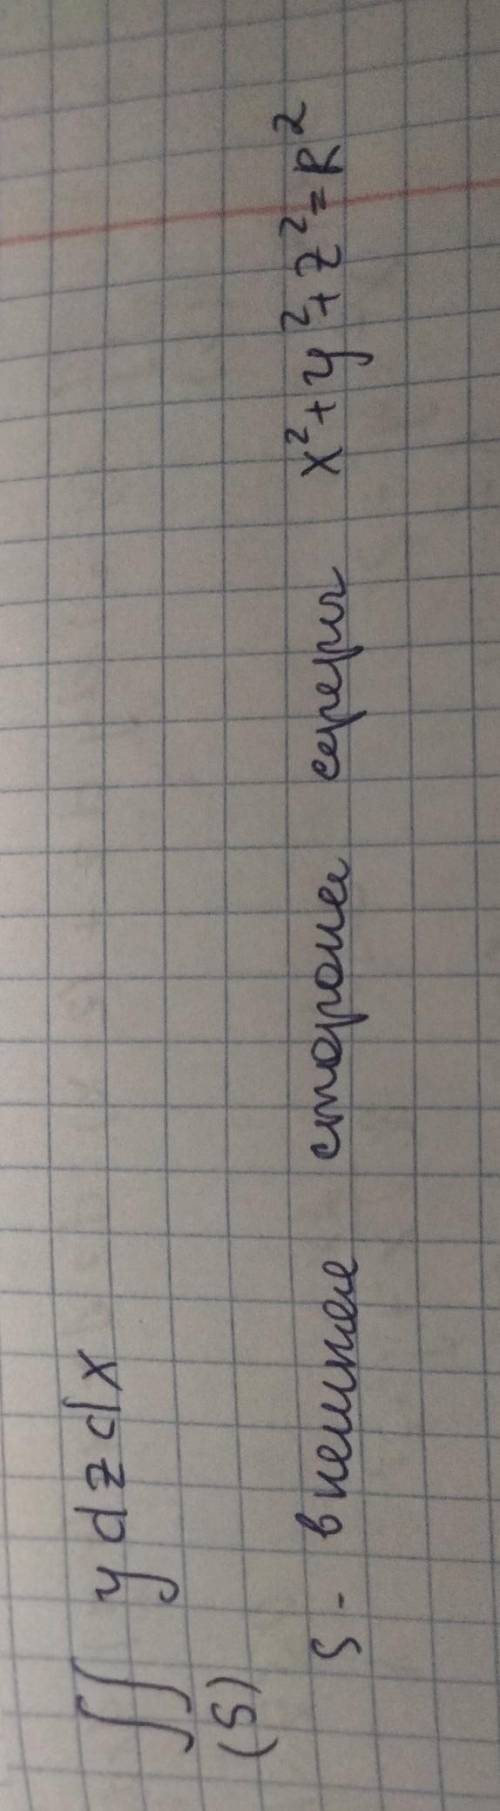 ∬ y dz dx
(S)
S - внешняя сторона сферы x² + y² + z² = R²